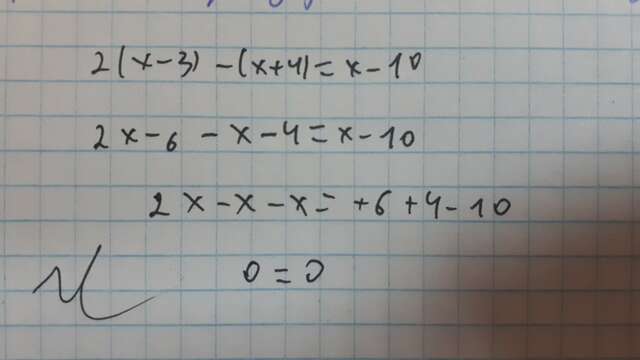 2(x-3) -(x+4)= x-10
2x-6 -x-4=x-10
2x-x-x= +6+4-10
0=0